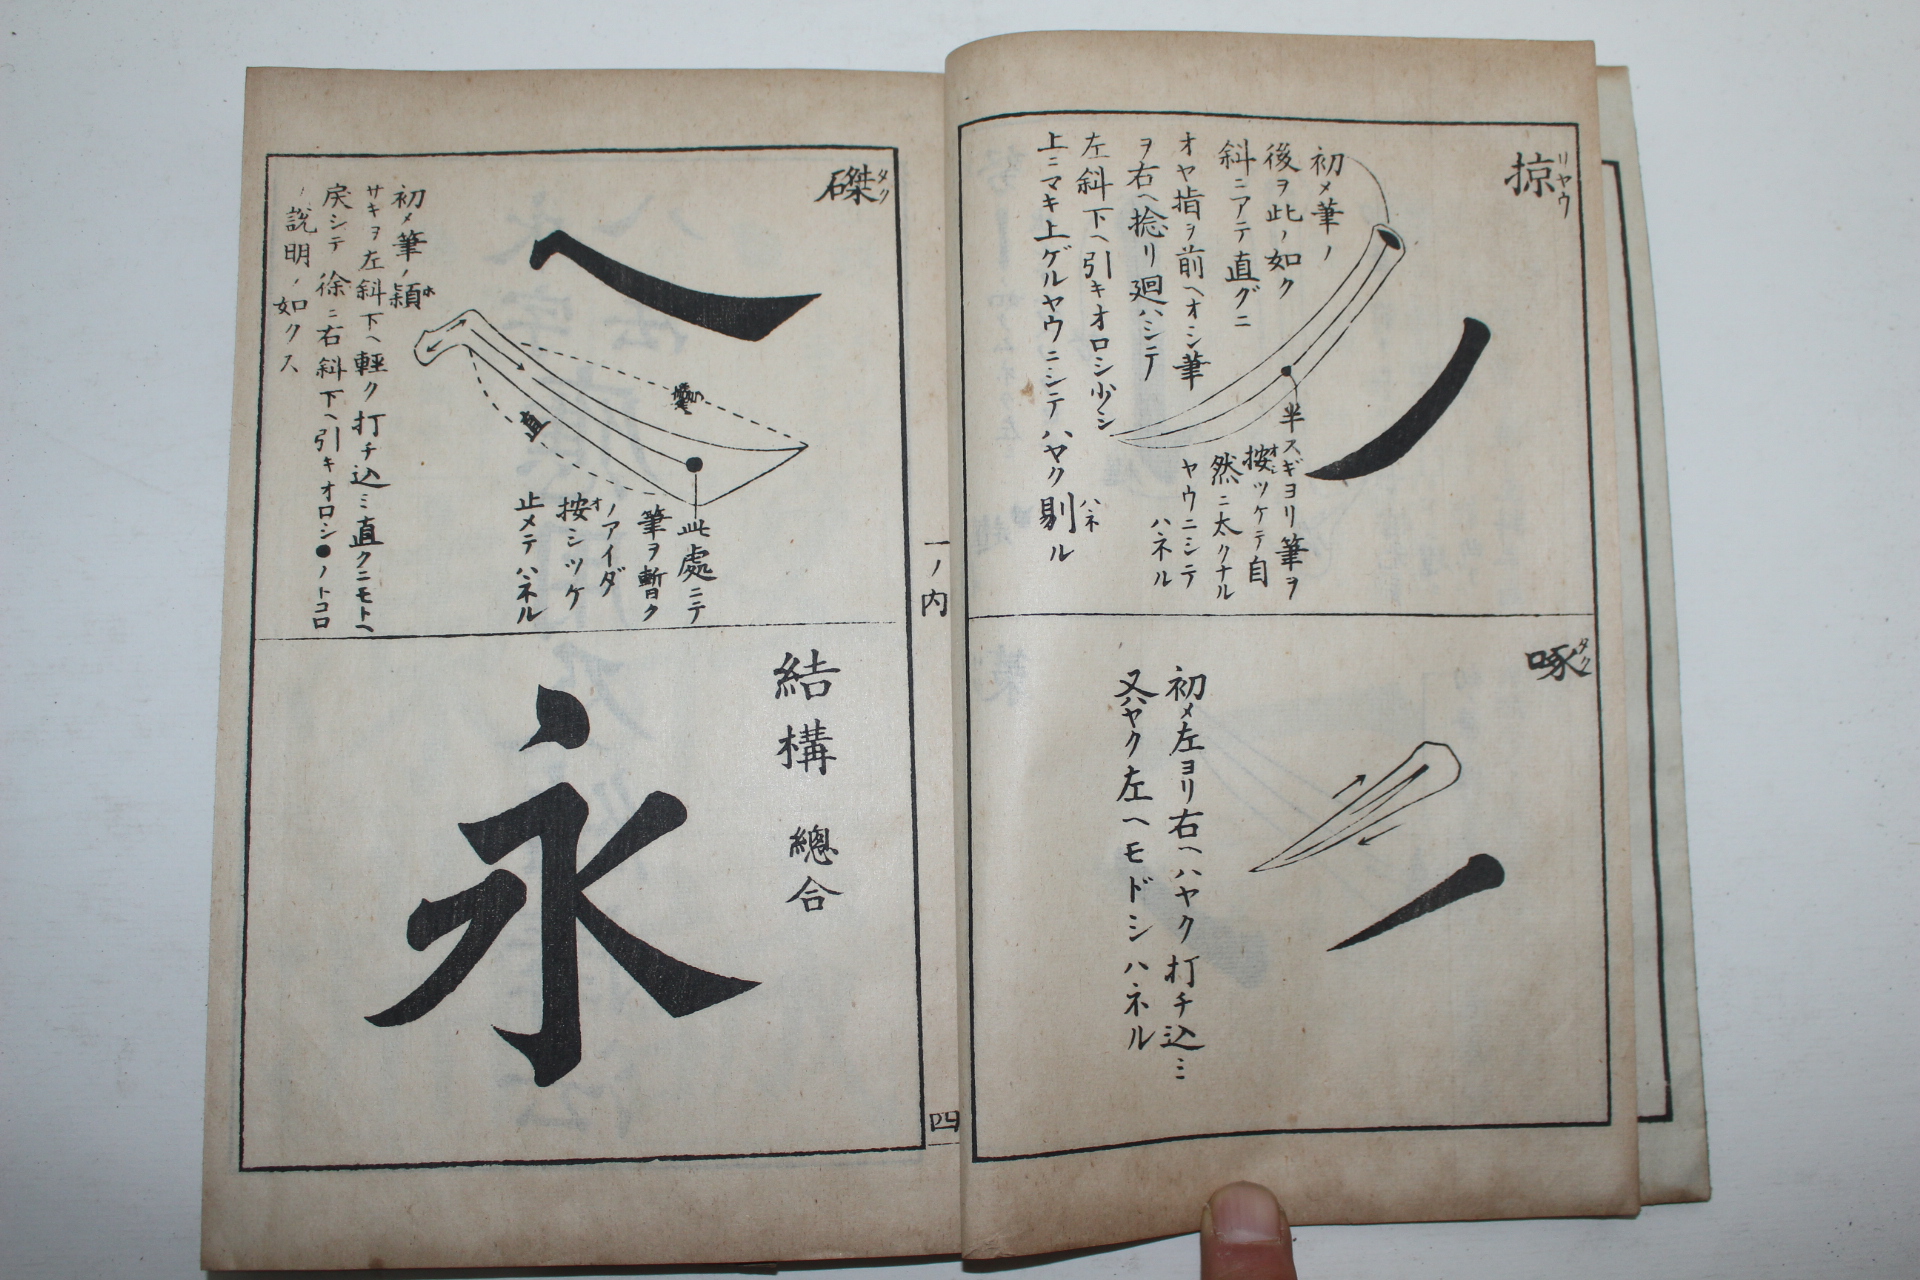 掠
リヤウ
初メ筆ノ
後ヲ此ノ如ク
斜ニアテ直グニ
オヤ指ヲ前ヘオシ筆
ヲ右ヘ捻リ廻ハシテ
左斜下ヘ引キオロシ少シ
上ニマキ上ゲルヤウニシテハヤク剔ル
ハネ
半スギヨリ筆ヲ
按ツケテ自
オシ
然ニ太クナル
ヤウニシテ
ハネル
啄
タク
初メ左ヨリ右ヘハヤク打チ込ミ
又ハヤク左ヘモドシハネル
一ノ内
四
磔
タク
此處ニテ
筆ヲ暫ク
ノアイダ
按シツケ
オ
止メテハネル
初メ筆ノ穎
ホ
サキヲ左斜下ヘ輕ク打チ込ミ直クニモトヘ
戻シテ徐ニ右斜下ヘ引キオロシ●ノトコロ
ノ説明ノ如クス
結構 總合
永